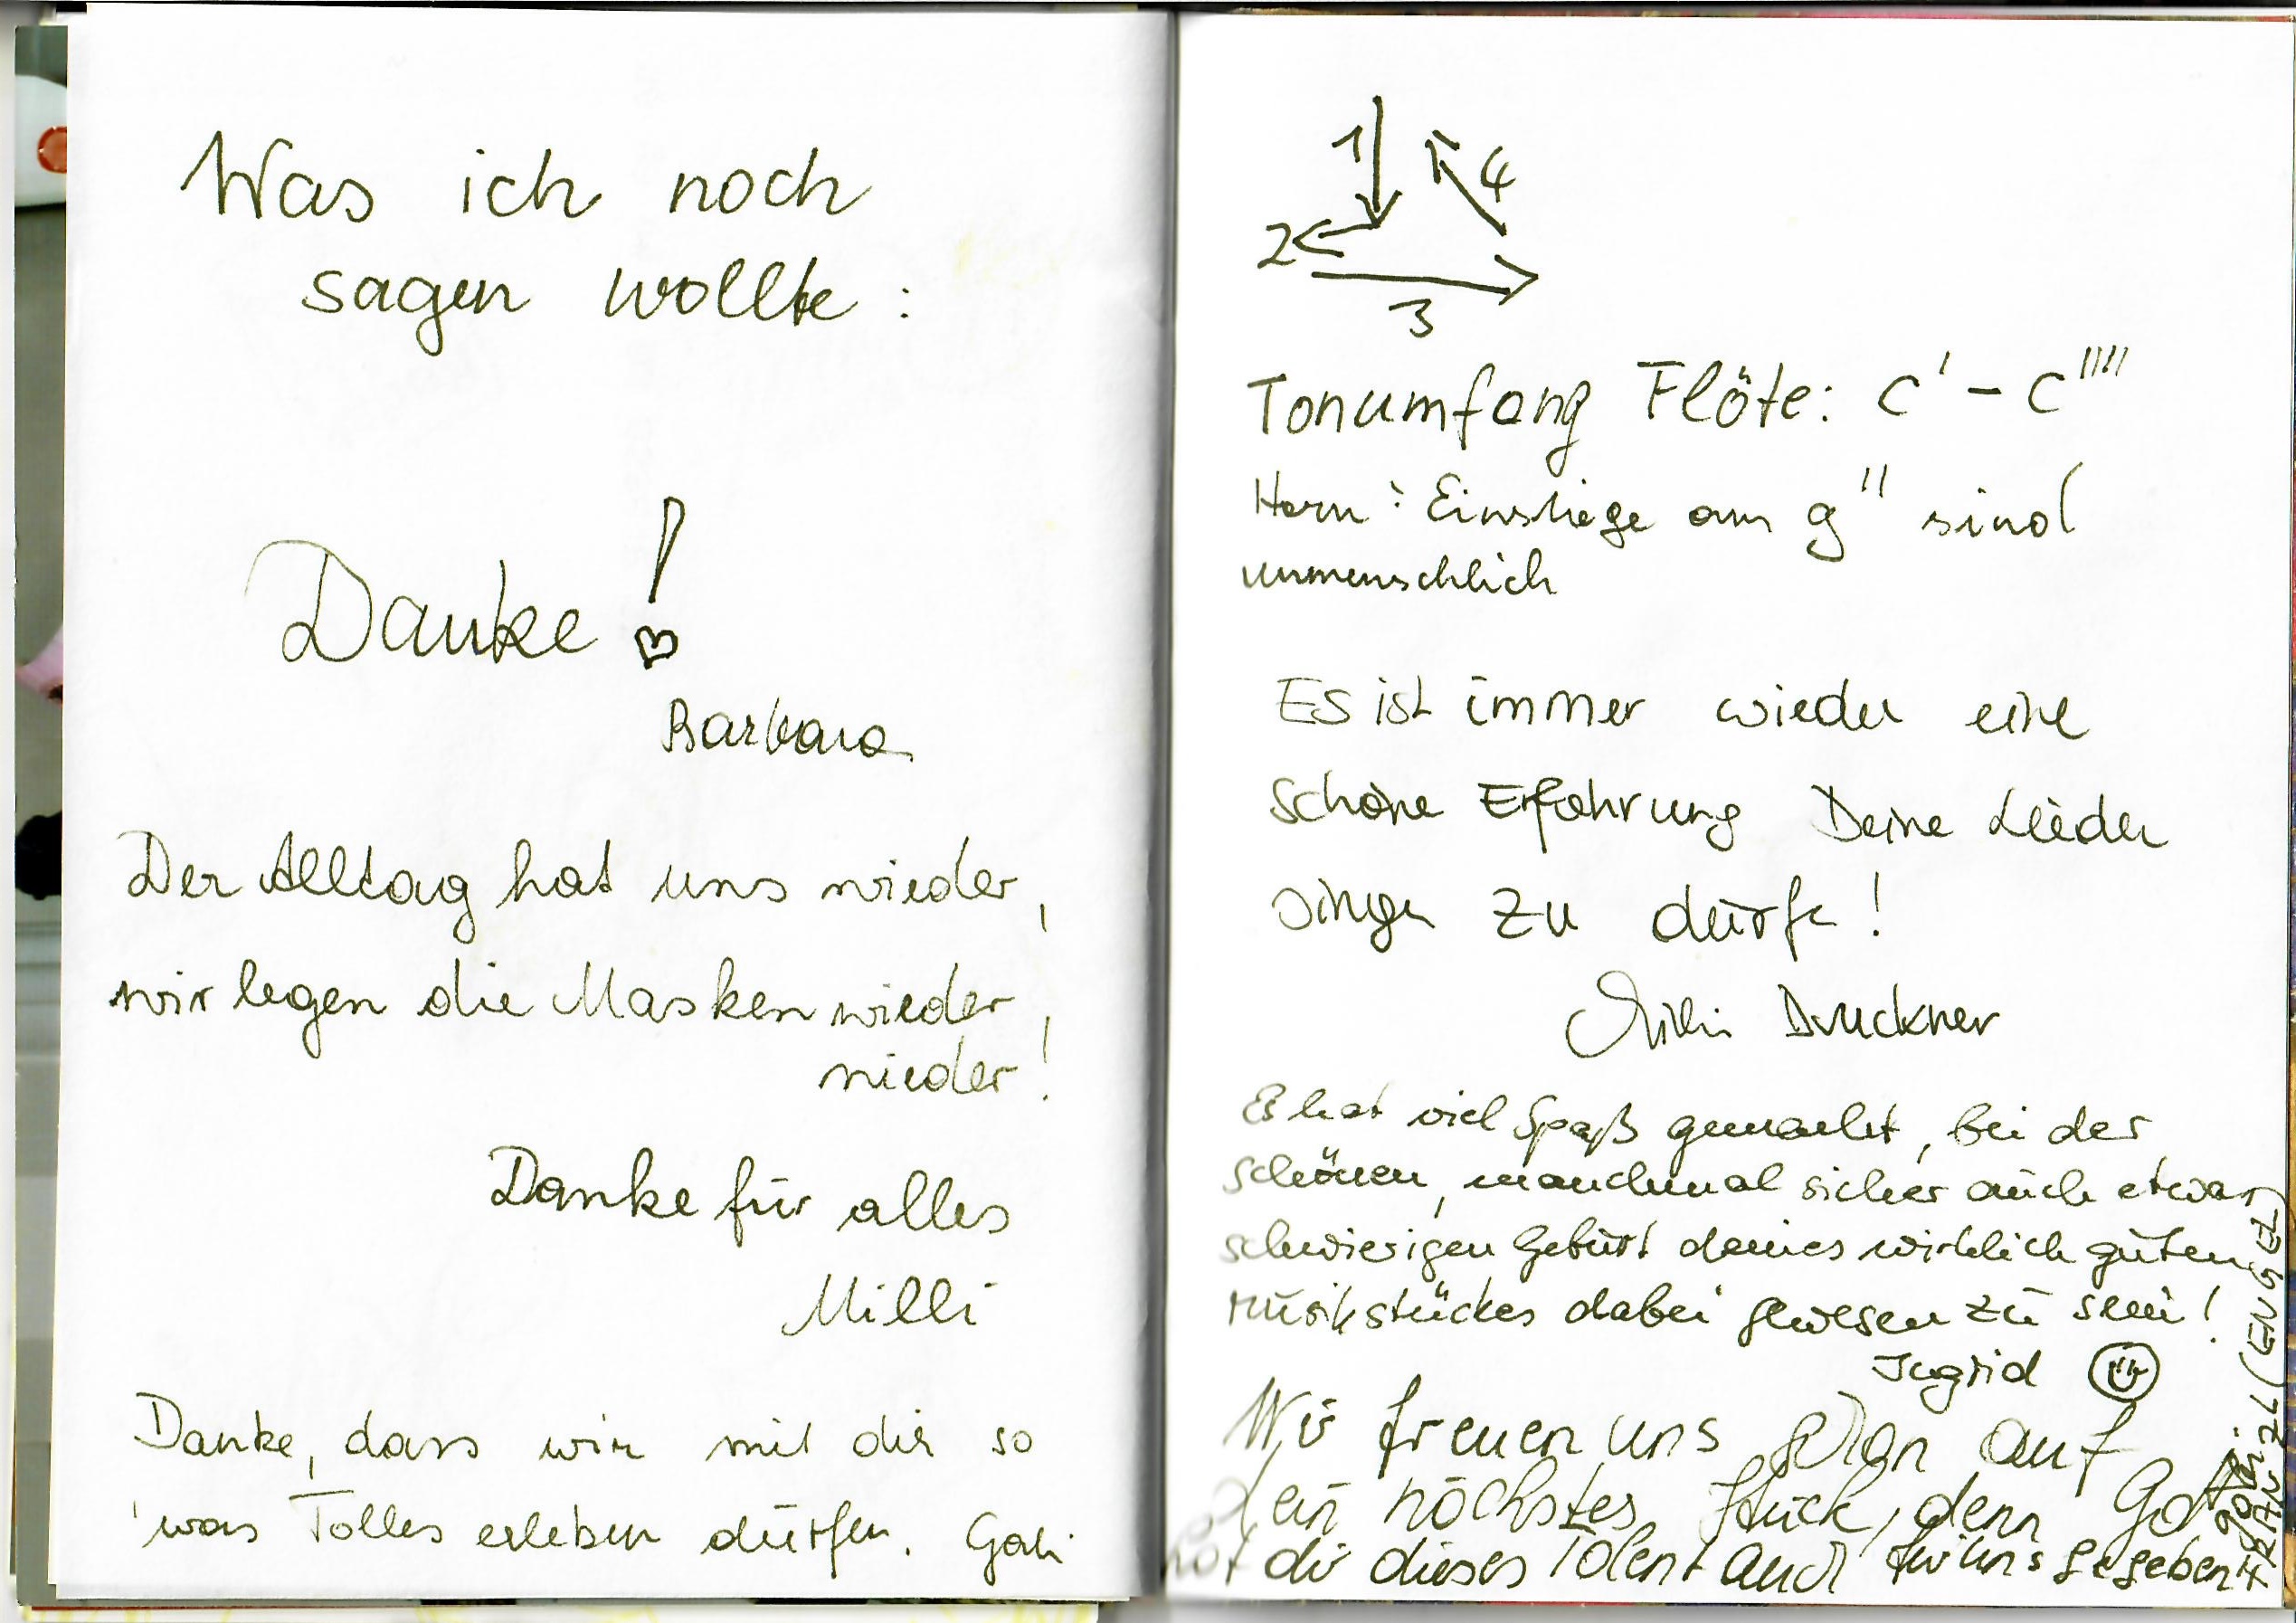 Was ich noch
sagen wollte :
Danke!
Barbara
Der Alltag hat uns wieder,
wir legen die Masken wieder,
nieder!
Danke für alles
Milli
Danke, dass wir mit dir so
'was Tolles erleben dürfen. Gabi
1
4
2
3
Tonumfang Flöte: c' – c''''
Horn: Einstiege am g'' sind
unmenschlich
Es ist immer wieder eine
schöne Erfahrung Deine Lieder
singen zu dürfen!
Druckner
Es hat viel Spaß gemacht, bei der
schönen, manchmal sicher auch etwas
schwierigen Geburt deines wirklich guten
Musikstückes dabei gewesen zu sein!
Ingrid
Wir freuen uns schon auf
dein nächstes Stück, denn Gott
hat dir dieses Talent auch für uns gegeben
FRANZL (ENGEL)